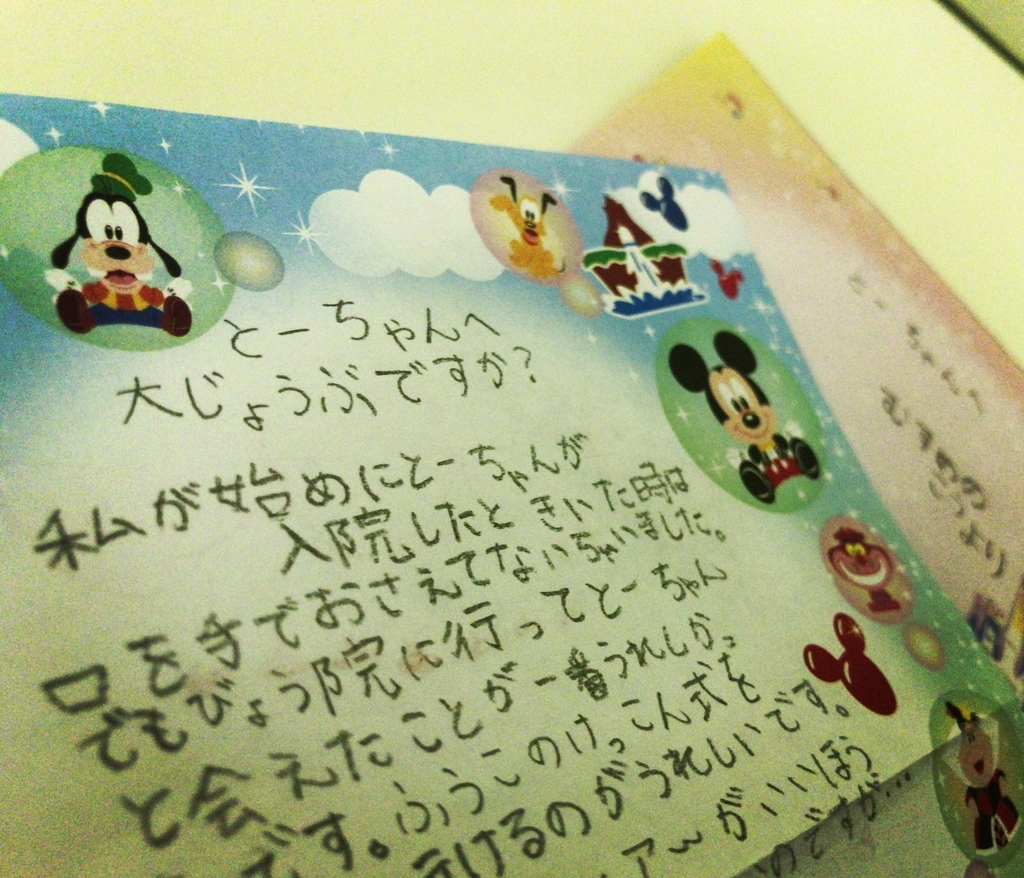 とーちゃんへ
大じょうぶですか?
私が始めにとーちゃんが
入院したときいた時は
口を手でおさえてないちゃいました。
でもびょう院に行ってとーちゃん
と会えたことが一番うれしかっ
です。ふうこのけっこん式を
行けるのがうれしいです。
ア〜がいいほう
のですが…
とーちゃんへ
むすめの
より